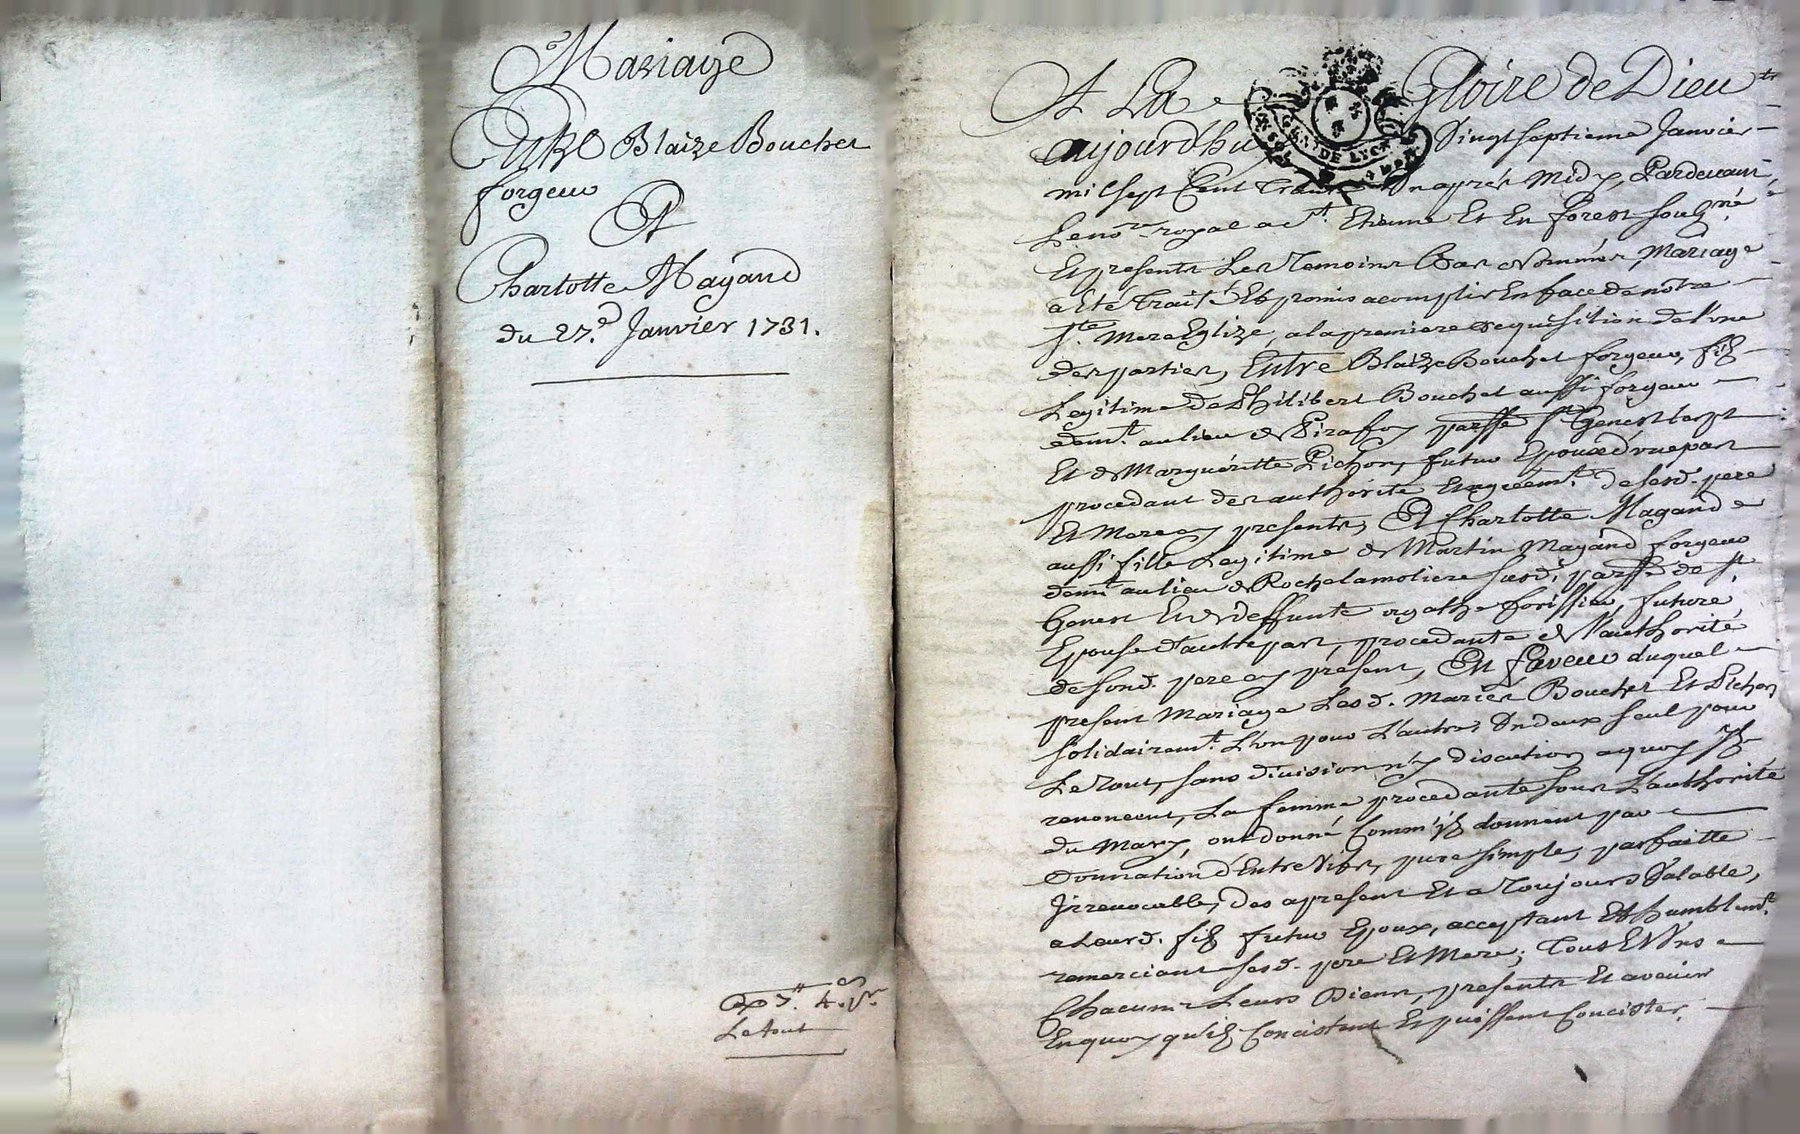 Mariage
Entre Blaize Bouchet
forgeur
Et
Charlotte Magand
du 27.e Janvier 1731.
Exp.
Le tout
A La Gloire de Dieu
aujourdhuy Vingt septieme Janvier
mil sept Cent Trente Un aprés Midy, Pardevant
Le no.re royal a St. Etienne Et En forest sousg.né
Et presents Les Temoins Bas Nommés, Mariage
a Eté Traité Et promis acomplir En face de notre
s.te Mere Eglize, a la premiere requisition de l'une
des parties, Entre Blaize Bouchet forgeur, fils
Legitime de Philibert Bouchet aussi forgeur
dem.t au lieu de Pirafoy parsse St Genest lerpt
Et de Marguéritte Pichon, futur Epoux d'une part
procedant de l'authorité Et agreém.t de sesd. pere
Et Mere cy presents, Et Charlotte Magand
aussi fille Legitime de Martin Magand forgeur
dem.t au lieu de Rochelamoliere susd. parsse de St
Genest Et de deffunte agathe forissier, future
Epouse d'autre part, procedante de l'authorité
de sond. pere cy present, En faveur duquel
present Mariage Lesd. Mariés Bouchet Et Pichon
solidairem.t L'un pour L'autre, Un deux seul pour
Le Tout, sans division n'y discution a quoy ils
renoncent, La femme procedante sous L'authorité
du Mary, ont donné Comm'ils donnent par
Donnation d'Entre Vifs, pure simple, parfaitte
Jrrevocable, des a present Et a Toujours Valable,
a Leurd. fils futur Epoux, acceptant Et humblem.t
remerciant sesd. pere Et Mere; Tous Et Uns
Chacuns Leurs Biens, presents Et avenir
En quoy qu'ils Concistent Et puissent Concister,
GEN. DE LYON